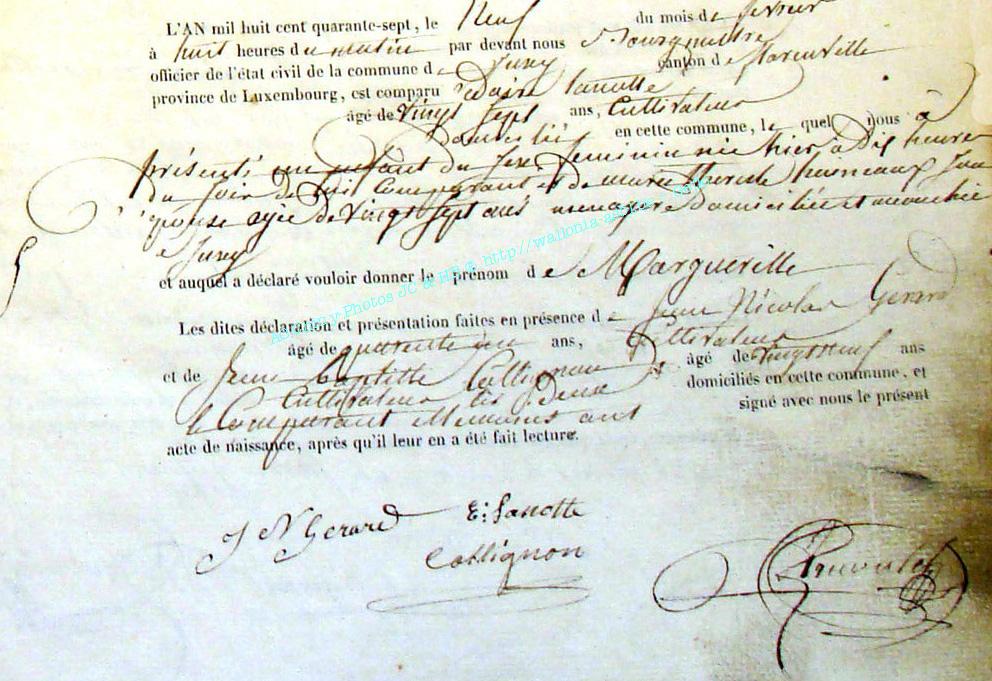 L'AN mil huit cent quarante-sept, le Neuf du mois de fevrier
à huit heures du matin par devant nous Bourgmestre
officier de l'état civil de la commune de Juzey canton de
province de Luxembourg, est comparu Lanotte
âgé de vingt sept ans, Cultivateur
Domicilié en cette commune, le quel nous à
présenté un enfant du sexe feminin née hier à Dix heures
du soir de lui Comparant et de marie therese
épouse agée de vingt sept ans menagere domiciliée et
à Juzey
et auquel a déclaré vouloir donner le prénom de Margueritte
Les dites déclaration et présentation faites en présence de Jean Nicolas Gerard
âgé de quarente un ans, Cultivateur
et de Jean Baptiste Collignon âgé de vingt neuf ans
Cultivateur les deux domiciliés en cette commune, et
le Comparant et temoins ont signé avec nous le présent
acte de naissance, après qu'il leur en a été fait lecture.
J N Gerard E: Lanotte
Collignon
Photos JC & HB © http://wallonia-asbl